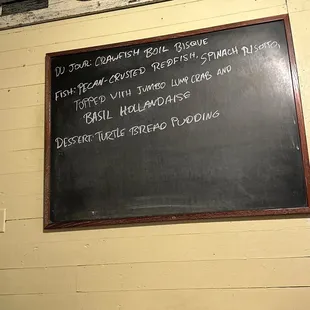 DU JOUR: CRAWFISH BOIL BISQUE
FISH: PECAN-CRUSTED REDFISH, SPINACH RISOTTO,
TOPPED WITH JUMBO LUMP CRAB AND
BASIL HOLLANDAISE
DESSERT: TURTLE BREAD PUDDING